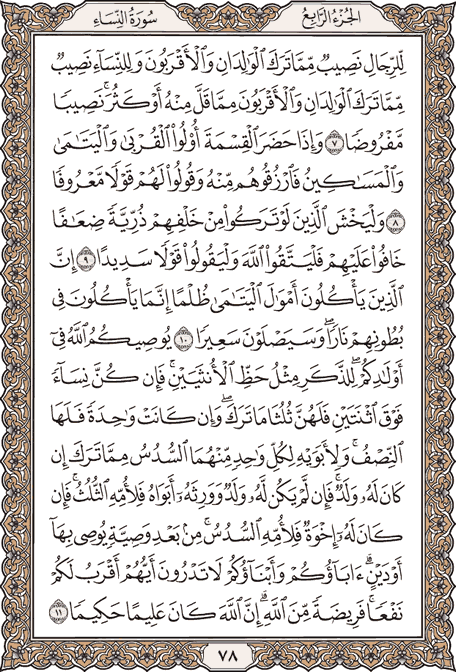 الجُزْءُ الرَّابِعُ
سُورَةُ النِّسَاءِ
لِّلرِّجَالِ نَصِيبٌ مِّمَّا تَرَكَ ٱلْوَٰلِدَانِ وَٱلْأَقْرَبُونَ وَلِلنِّسَآءِ نَصِيبٌ
مِّمَّا تَرَكَ ٱلْوَٰلِدَانِ وَٱلْأَقْرَبُونَ مِمَّا قَلَّ مِنْهُ أَوْ كَثُرَ ۚ نَصِيبًا
مَّفْرُوضًا ٧ وَإِذَا حَضَرَ ٱلْقِسْمَةَ أُو۟لُوا۟ ٱلْقُرْبَىٰ وَٱلْيَتَٰمَىٰ
وَٱلْمَسَٰكِينُ فَٱرْزُقُوهُم مِّنْهُ وَقُولُوا۟ لَهُمْ قَوْلًا مَّعْرُوفًا
٨ وَلْيَخْشَ ٱلَّذِينَ لَوْ تَرَكُوا۟ مِنْ خَلْفِهِمْ ذُرِّيَّةً ضِعَٰفًا
خَافُوا۟ عَلَيْهِمْ فَلْيَتَّقُوا۟ ٱللَّهَ وَلْيَقُولُوا۟ قَوْلًا سَدِيدًا ٩ إِنَّ
ٱلَّذِينَ يَأْكُلُونَ أَمْوَٰلَ ٱلْيَتَٰمَىٰ ظُلْمًا إِنَّمَا يَأْكُلُونَ فِى
بُطُونِهِمْ نَارًا ۖ وَسَيَصْلَوْنَ سَعِيرًا ١٠ يُوصِيكُمُ ٱللَّهُ فِىٓ
أَوْلَٰدِكُمْ ۖ لِلذَّكَرِ مِثْلُ حَظِّ ٱلْأُنثَيَيْنِ ۚ فَإِن كُنَّ نِسَآءً
فَوْقَ ٱثْنَتَيْنِ فَلَهُنَّ ثُلُثَا مَا تَرَكَ ۖ وَإِن كَانَتْ وَٰحِدَةً فَلَهَا
ٱلنِّصْفُ ۚ وَلِأَبَوَيْهِ لِكُلِّ وَٰحِدٍ مِّنْهُمَا ٱلسُّدُسُ مِمَّا تَرَكَ إِن
كَانَ لَهُۥ وَلَدٌ ۚ فَإِن لَّمْ يَكُن لَّهُۥ وَلَدٌ وَوَرِثَهُۥٓ أَبَوَاهُ فَلِأُمِّهِ ٱلثُّلُثُ ۚ فَإِن
كَانَ لَهُۥٓ إِخْوَةٌ فَلِأُمِّهِ ٱلسُّدُسُ ۚ مِنۢ بَعْدِ وَصِيَّةٍ يُوصِى بِهَآ
أَوْ دَيْنٍ ۗ ءَابَآؤُكُمْ وَأَبْنَآؤُكُمْ لَا تَدْرُونَ أَيُّهُمْ أَقْرَبُ لَكُمْ
نَفْعًا ۚ فَرِيضَةً مِّنَ ٱللَّهِ ۗ إِنَّ ٱللَّهَ كَانَ عَلِيمًا حَكِيمًا ١١
٧٨